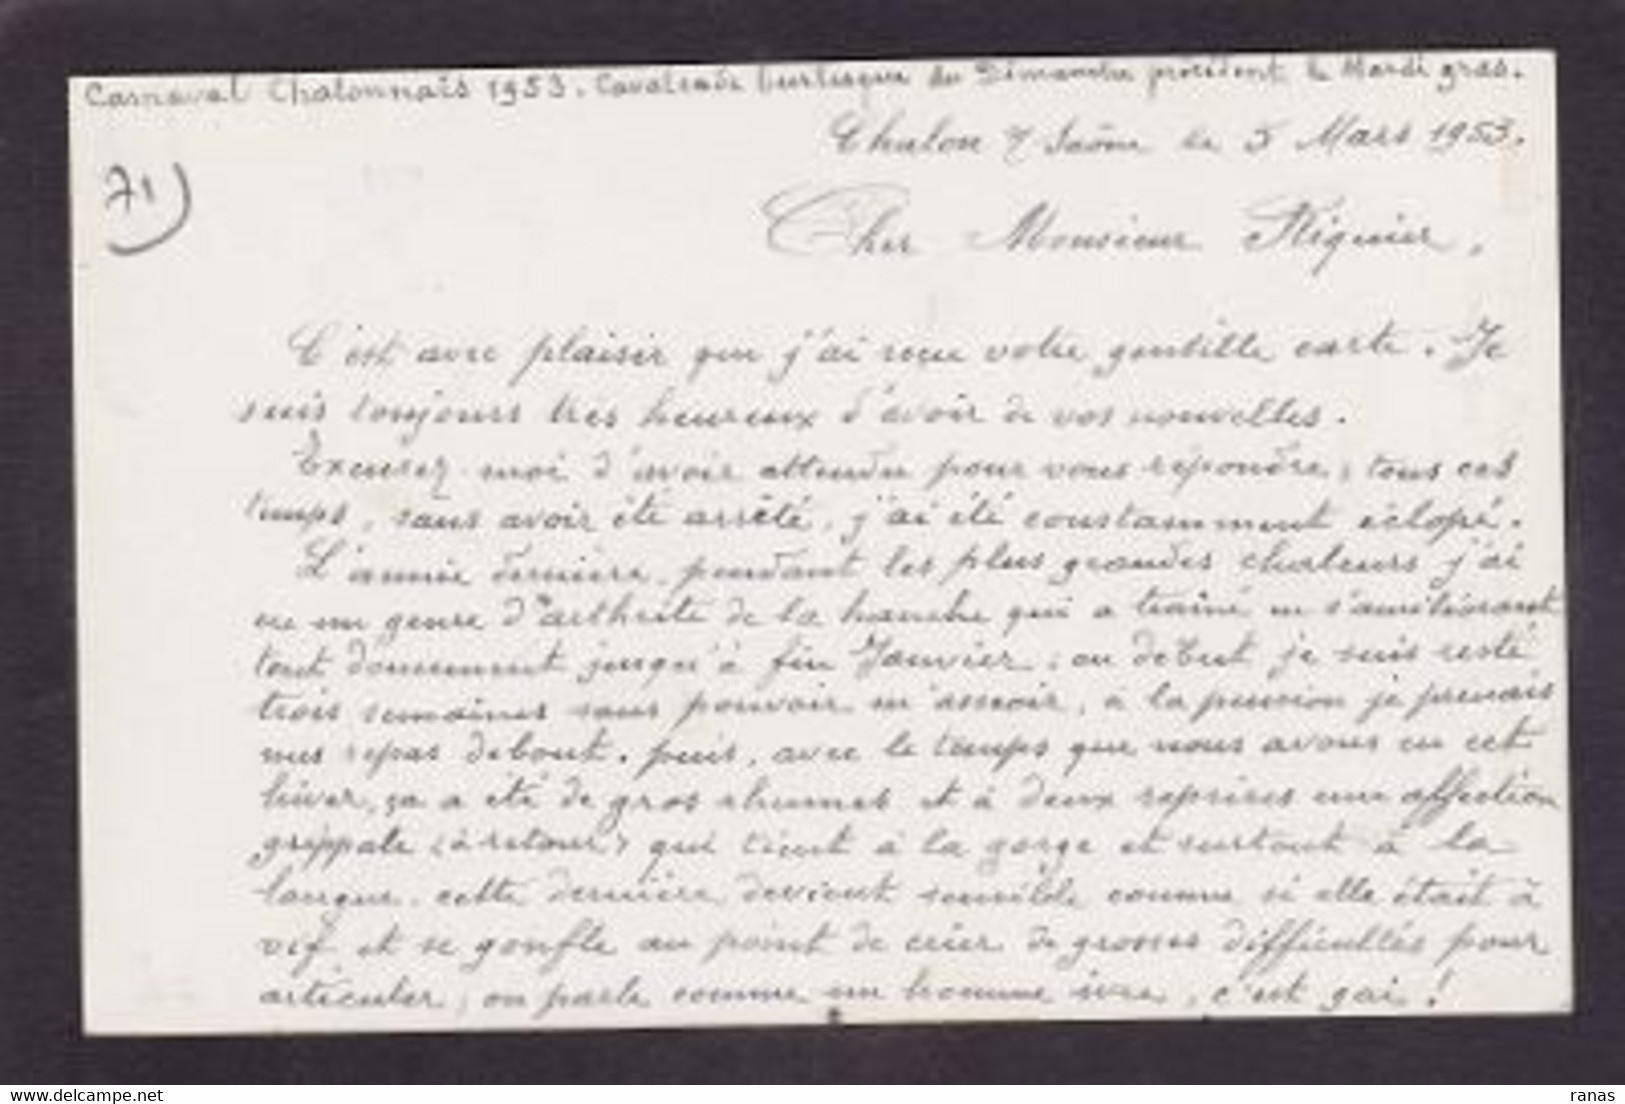 Carnaval Chalonnais 1953. Cavalcade burlesque du Dimanche précédent le Mardi gras.
Chalon s/ Saône le 5 Mars 1953.
71)
Cher Monsieur Riguier,
C'est avec plaisir que j'ai reçu votre gentille carte. Je
suis toujours très heureux d'avoir de vos nouvelles.
Excusez-moi d'avoir attendu pour vous répondre, tous ces
temps, sans avoir été arrêté, j'ai été constamment éclopé.
L'année dernière, pendant les plus grandes chaleurs j'ai
eu un genre d'arthrite de la hanche qui a traîné en s'améliorant
tout doucement jusqu'à fin Janvier; au début je suis resté
trois semaines sans pouvoir m'asseoir, à la pension je prenais
mes repas debout. puis, avec le temps que nous avons eu cet
hiver, ça a été de gros rhumes et à deux reprises une affection
grippale (à retour) qui tient à la gorge et surtout à la
langue. cette dernière devient sensible comme si elle était à
vif et se gonfle au point de créer de grosses difficultés pour
articuler, on parle comme un homme ivre, c'est gai!
ranas